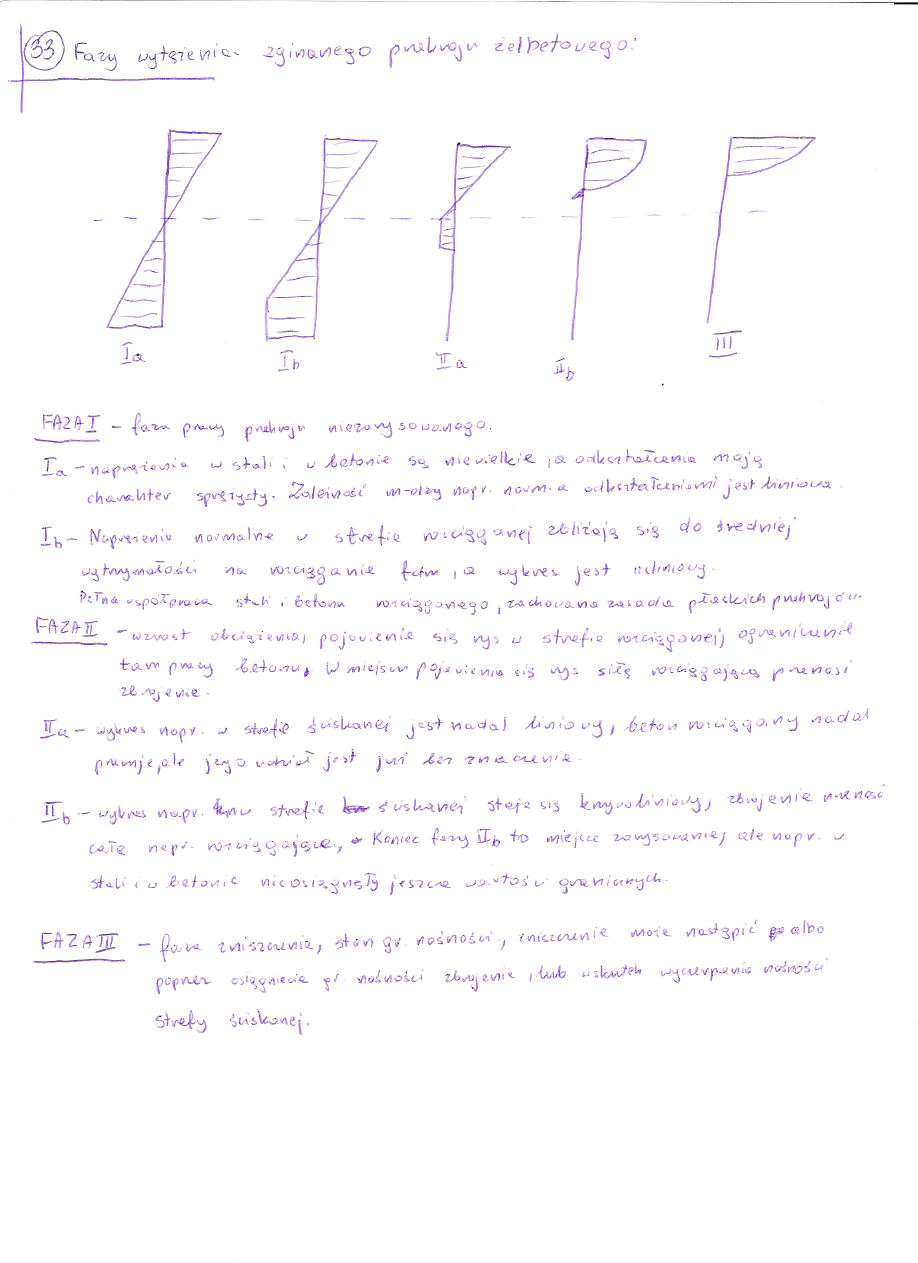 33 Fazy wytężenia zginanego przekroju żelbetowego:
Ia
Ib
IIa
IIb
III
FAZA I - faza pracy przekroju niezarysowanego.
Ia - naprężenia w stali i w betonie są niewielkie, a odkształcenia mają
charakter sprężysty. Zależność m-dzy napr. norm. a odkształceniami jest liniowa.
Ib - Naprężenia normalne w strefie rozciąganej zbliżają się do średniej
wytrzymałości na rozciąganie fctm, a wykres jest nieliniowy.
Pełna współpraca stali i betonu rozciąganego, zachowana zasada płaskich przekrojów.
FAZA II - wzrost obciążenia, pojawienie się rys w strefie rozciąganej ograniczenie
tam pracy betonu. W miejscu pojawienia się rys siłę rozciągającą przenosi
zbrojenie.
IIa - wykres napr. w strefie ściskanej jest nadal liniowy, beton rozciągany nadal
pracuje, ale jego udział jest już bez znaczenia.
IIb - wykres napr. w strefie ściskanej staje się krzywoliniowy, zbrojenie przenosi
całe napr. rozciągające, Koniec fazy IIb to miejsce zarysowane, ale napr. w
stali i w betonie nie osiągnęły jeszcze wartości granicznych.
FAZA III - faza zniszczenia, stan gr. nośności., zniszczenie może nastąpić albo
poprzez osiągniecie gr. nośności zbrojenia, lub wskutek wyczerpania nośności
strefy ściskanej.